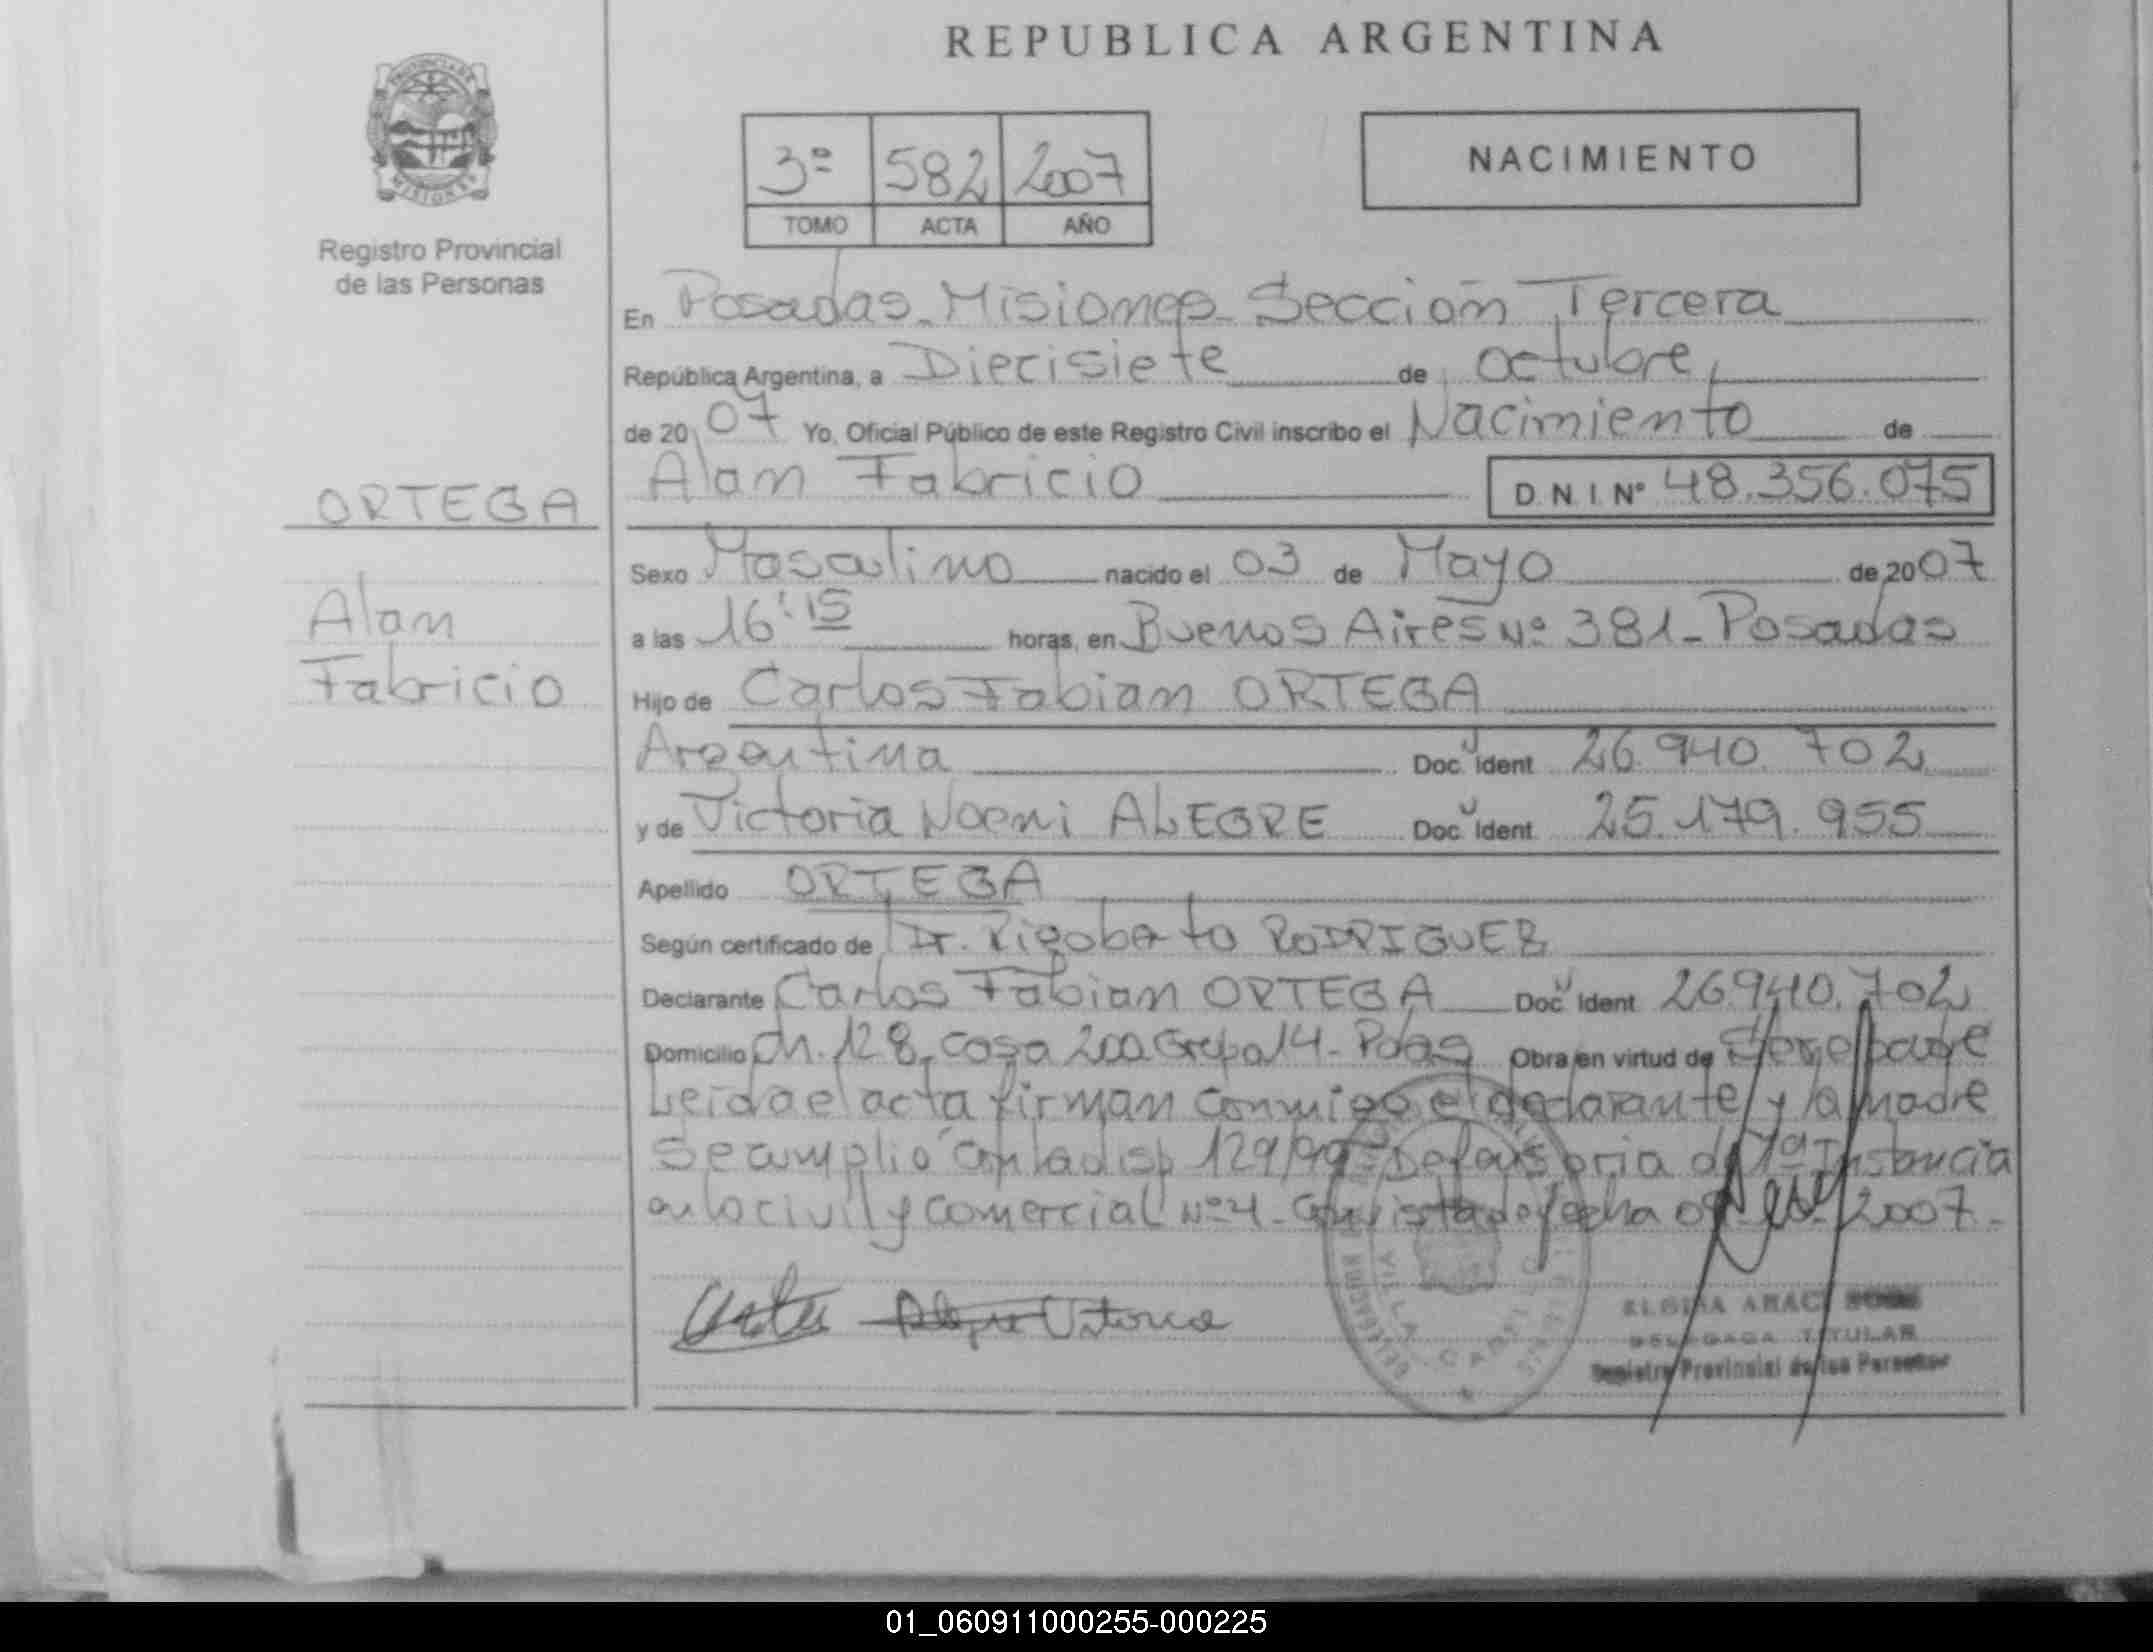 REPUBLICA ARGENTINA
PROVINCIA DE
MISIONES
Registro Provincial
de las Personas
3º 582 2007
TOMO ACTA AÑO
NACIMIENTO
En Posadas - Misiones - Sección Tercera
República Argentina, a Diecisiete de octubre,
de 2007 Yo, Oficial Público de este Registro Civil inscribo el Nacimiento de
Alan Fabricio D.N.I. Nº 48.356.075
ORTEGA
Alan
Fabricio
Sexo Masculino nacido el 03 de Mayo de 2007
a las 16:15 horas, en Buenos Aires Nº 381 - Posadas
Hijo de Carlos Fabian ORTEGA
Argentina Doc. Ident 26.940.702
y de Victoria Noemi ALEGRE Doc. Ident. 25.179.955
Apellido ORTEGA
Según certificado de Dr. Rigoberto RODRIGUEZ
Declarante Carlos Fabian ORTEGA Doc. Ident 26940.702
Domicilio Ch. 128, Casa 200 Grupo 14 - Pdas Obra en virtud de padre
Leida el acta firman conmigo el declarante y la madre
Se cumplió con la disp 129/99 Defensoria de 1ª Instancia
en lo civil y comercial Nº 4 - con vista de fecha 2007.-
Victoria
VILLA CABELLO
DELEGADA TITULAR
Registro Provincial de las Personas
01_060911000255-000225